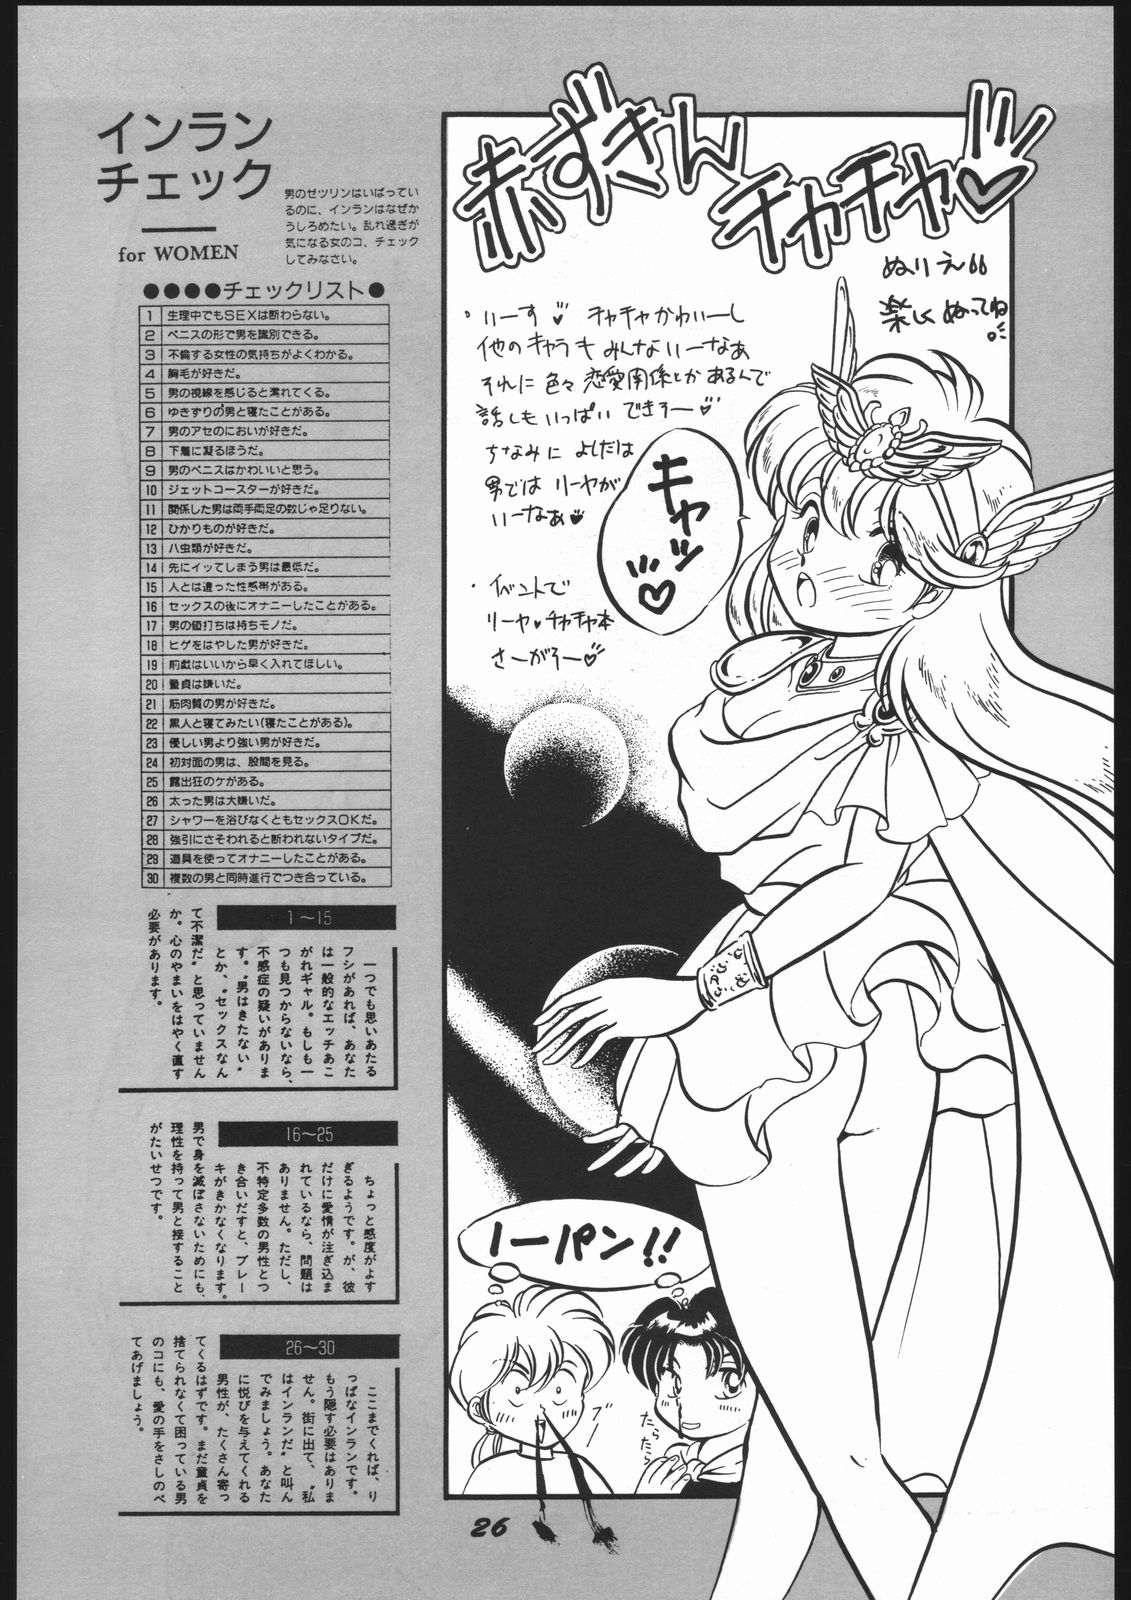 インラン
チェック
for WOMEN
男のゼツリンはいばってい
るのに、インランはなぜか
うしろめたい。乱れ過ぎが
気になる女のコ、チェック
してみなさい。
●●●●チェックリスト●
1 生理中でもSEXは断わらない。
2 ペニスの形で男を識別できる。
3 不倫する女性の気持ちがよくわかる。
4 胸毛が好きだ。
5 男の視線を感じると濡れてくる。
6 ゆきずりの男と寝たことがある。
7 男のアセのにおいが好きだ。
8 下着に凝るほうだ。
9 男のペニスはかわいいと思う。
10 ジェットコースターが好きだ。
11 関係した男は両手両足の数じゃ足りない。
12 ひかりものが好きだ。
13 ハ虫類が好きだ。
14 先にイッてしまう男は最低だ。
15 人とは違った性感帯がある。
16 セックスの後にオナニーしたことがある。
17 男の値打ちは持ちモノだ。
18 ヒゲをはやした男が好きだ。
19 前戯はいいから早く入れてほしい。
20 童貞は嫌いだ。
21 筋肉質の男が好きだ。
22 黒人と寝てみたい(寝たことがある)。
23 優しい男より強い男が好きだ。
24 初対面の男は、股間を見る。
25 露出狂のケがある。
26 太った男は大嫌いだ。
27 シャワーを浴びなくともセックスOKだ。
28 強引にさそわれると断われないタイプだ。
29 道具を使ってオナニーしたことがある。
30 複数の男と同時進行でつき合っている。
1〜15
一つでも思いあたる
フシがあれば、あなた
は一般的なエッチあこ
がれギャル。もしも一
つも見つからないなら、
不感症の疑いがありま
す。〝男はきたない〟
とか、〝セックスなん
て不潔だ〟と思っていません
か。心のやまいをはやく直す
必要があります。
16〜25
ちょっと感度がよす
ぎるようです。が、彼
だけに愛情が注ぎ込ま
れているなら、問題は
ありません。ただし、
不特定多数の男性とつ
き合いだすと、ブレー
キがきかなくなります。
男で身を滅ぼさないためにも、
理性を持って男と接すること
がたいせつです。
26〜30
ここまでくれば、り
っぱなインランです。
もう隠す必要はありま
せん。街に出て、〝私
はインランだ〟と叫ん
でみましょう。あなた
に悦びを与えてくれる
男性が、たくさん寄っ
てくるはずです。まだ童貞を
捨てられなくて困っている男
のコにも、愛の手をさしのべ
てあげましょう。
赤ずきん
チャチャ♡
ぬりえ
楽しくぬってね
・いーす♡ チャチャかわいーし
他のキャラもみんないーなぁ
それに色々恋愛関係とかあるんで
話しもいっぱいできそー♡
ちなみによしだは
男ではリーヤが
いーなぁ♡
・イベントで
リーヤ♥チャチャ本
さーがそー♡
キャッ…♡
ノーパン!!
ブー
たらたら
26